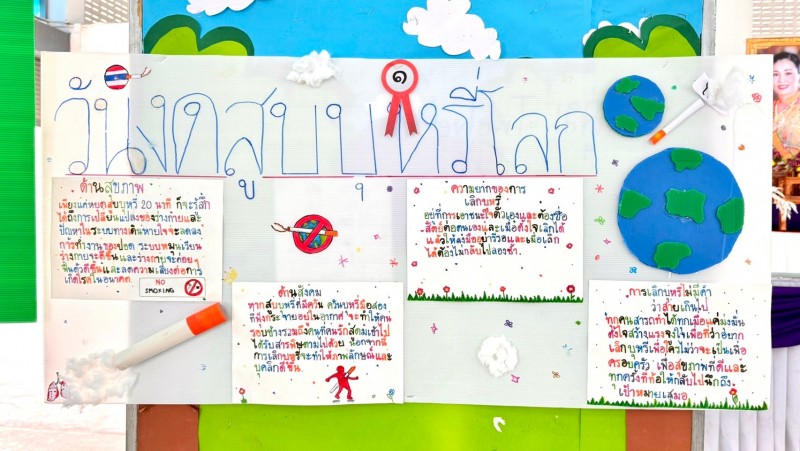 ๑
วันงดสูบบุหรี่โลก
ด้านสุขภาพ
เพียงแค่หยุดสูบบุหรี่ 20 นาที ก็จะรู้สึก
ได้ถึงการเปลี่ยนแปลงของร่างกายและ
ปัญหาในระบบทางเดินหายใจจะลดลง
การทำงานของปอด ระบบหมุนเวียน
ร่างกายจะดีขึ้นและร่างกายจะค่อยๆ
ฟื้นตัวดีขึ้นและลดความเสี่ยงต่อการ
เกิดโรคในอนาคต
NO
SMOKING
ด้านสังคม
หากสูบบุหรี่ที่มีควัน ควันบุหรี่มือสอง
ที่ฟุ้งกระจายอยู่ในอากาศ จะทำให้คน
รอบข้างรวมถึงคนที่คุณรักสูดมเข้าไป
ได้รับสารพิษตามไปด้วย นอกจากนี้
การเลิกบุหรี่จะทำให้ภาพลักษณ์และ
บุคลิกดีขึ้น
ความยากของการ
เลิกบุหรี่
อยู่ที่การเอาชนะใจตัวเองและต้องซื่อ
สัตย์ต่อตนเองและเมื่อตั้งใจเลิกได้
แล้วให้ลงมืออย่ารีรอและเมื่อเลิก
ได้ต้องไม่กลับไปลองซ้ำ
การเลิกบุหรี่ไม่มีคำ
ว่าสายเกินไป
ทุกคนสารถทำได้ทุกเมื่อแค่มุ่งมั่น
ตั้งใจสร้างแรงจูงใจเพื่อที่ว่าอยาก
เลิกบุหรี่เพื่อใครไม่ว่าจะเป็นเพื่อ
ครอบครัว เพื่อสุขภาพที่ดีและ
ทุกครั้งที่ท้อให้กลับไปนึกถึง
เป้าหมายเสมอ